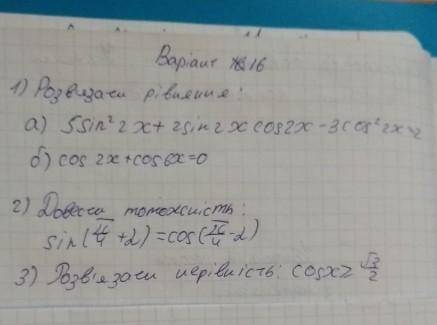 Варіант №16
1) Розвязати рівняння:
а) 5sin²2x+2sin2x cos2x-3cos²2x=2
б) cos2x+cos6x=0
2) Довести тотожність:
sin(π/4+2)=cos(π/4-2)
3) Розв'язати нерівність: cosx≥√3/2